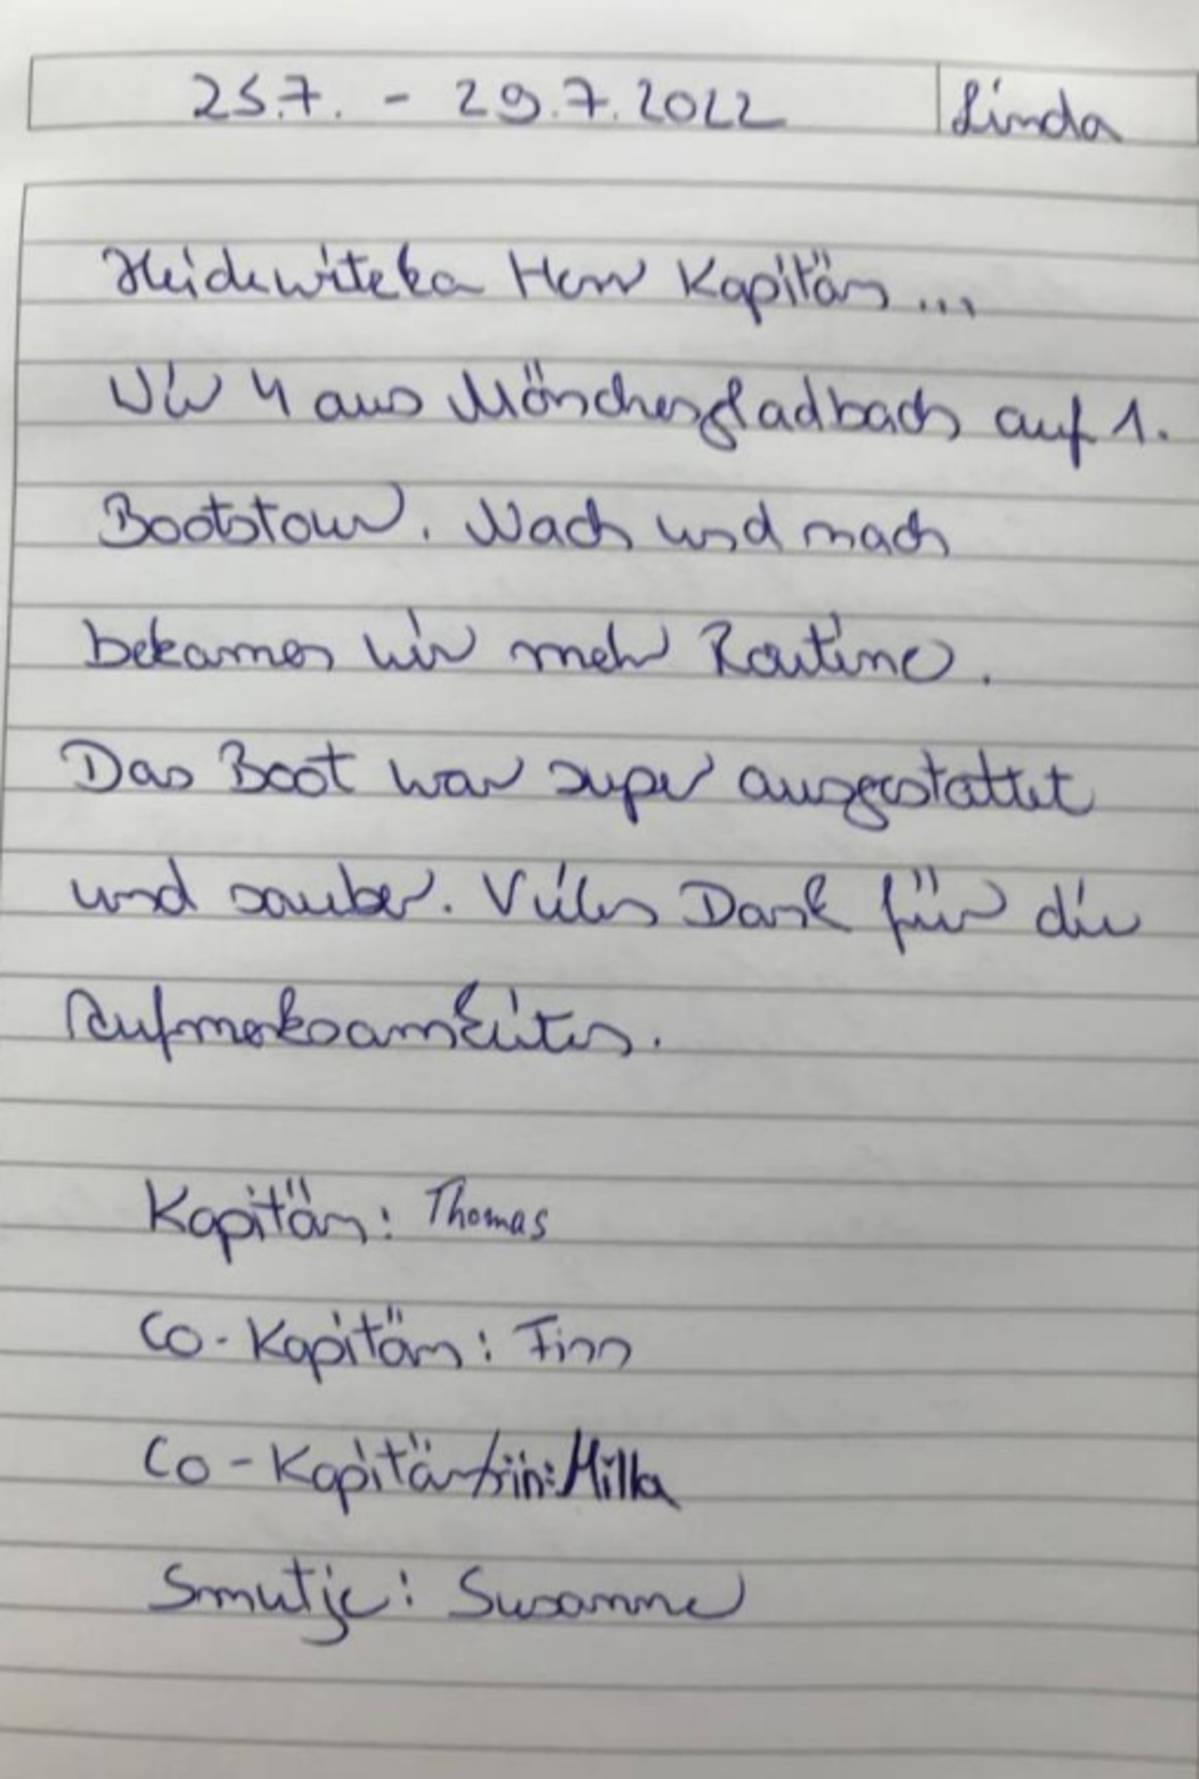 25.7. - 29.7.2022 Linda
Heidewitzka Herr Kapitän ...
Wir 4 aus Mönchengladbach auf 1.
Bootstour. Nach und nach
bekamen wir mehr Routine.
Das Boot war super ausgestattet
und sauber. Vielen Dank für die
Aufmerksamkeiten.
Kapitän: Thomas
Co-Kapitän: Finn
Co-Kapitän/in: Milla
Smutje: Susanne